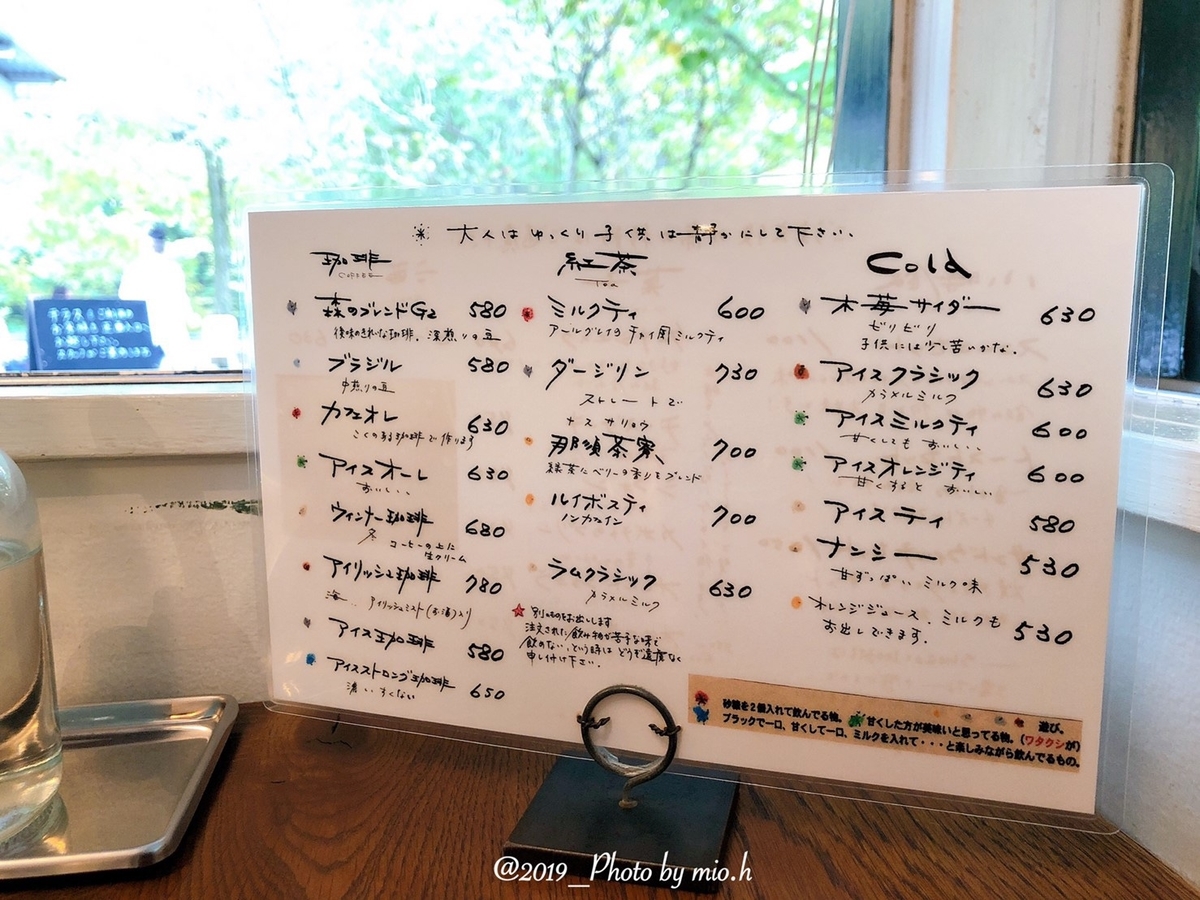 大人は ゆっくり 子供は静かにして下さい.
珈琲
COFFEE
森のブレンドG2 580
後味のきれいな珈琲. 深煎りの豆
ブラジル 580
中煎りの豆
カフェオレ 630
こくのある珈琲で作ります
アイスオーレ 630
おいしい.
ウィンナー珈琲 680
冬 コーヒーの上に
生クリーム
アイリッシュ珈琲 780
アイリッシュミスト(お酒)入り
アイス珈琲 580
アイスストロング珈琲 650
濃い すくない
紅茶
Tea
ミルクティ 600
アールグレイの チャイ風ミルクティ
ダージリン 730
ストレートで
ナス サリョウ
那須茶寮 700
緑茶にベリーの香りをブレンド
ルイボスティ 700
ノンカフェイン
ラムクラシック 630
カラメルミルク
別のものをお出しします
注文された飲み物が苦手な味で
飲めない.という時は どうぞ遠慮なく
申し付け下さい.
Cold
木苺サイダー 630
ピリピリ
子供には少し苦いかな.
アイスクラシック 630
カラメルミルク
アイスミルクティ 600
甘くしても おいしい.
アイスオレンジティ 600
甘くすると おいしい
アイスティ 580
ナンシー 530
甘ずっぱい ミルク味
オレンジジュース. ミルクも 530
お出しできます.
砂糖を2個入れて飲んでる物。 甘くした方が美味いと思ってる物。(ワタクシが) 遊び。
ブラックで一口、甘くして一口、ミルクを入れて・・・と楽しみながら飲んでるもの。
@2019_Photo by mio.h